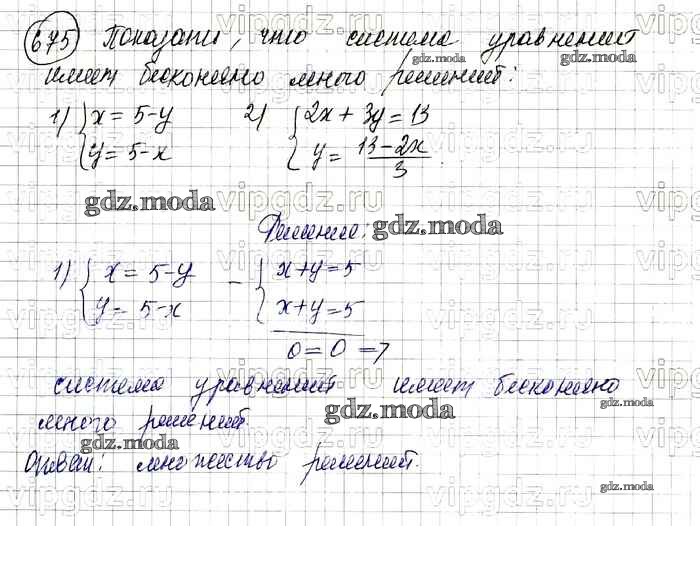 675 Показати, что система уравнений
имеет бесконечно много решений:
1) { x = 5-y 2) { 2x + 3y = 13
y = 5-x y = 13-2x / 3
Решение:
1) { x = 5-y - { x+y=5
y = 5-x x+y=5
0=0 =>
система уравнений имеет бесконечно
много решений.
Ответ: множество решений.
gdz.moda
vipgdz.ru